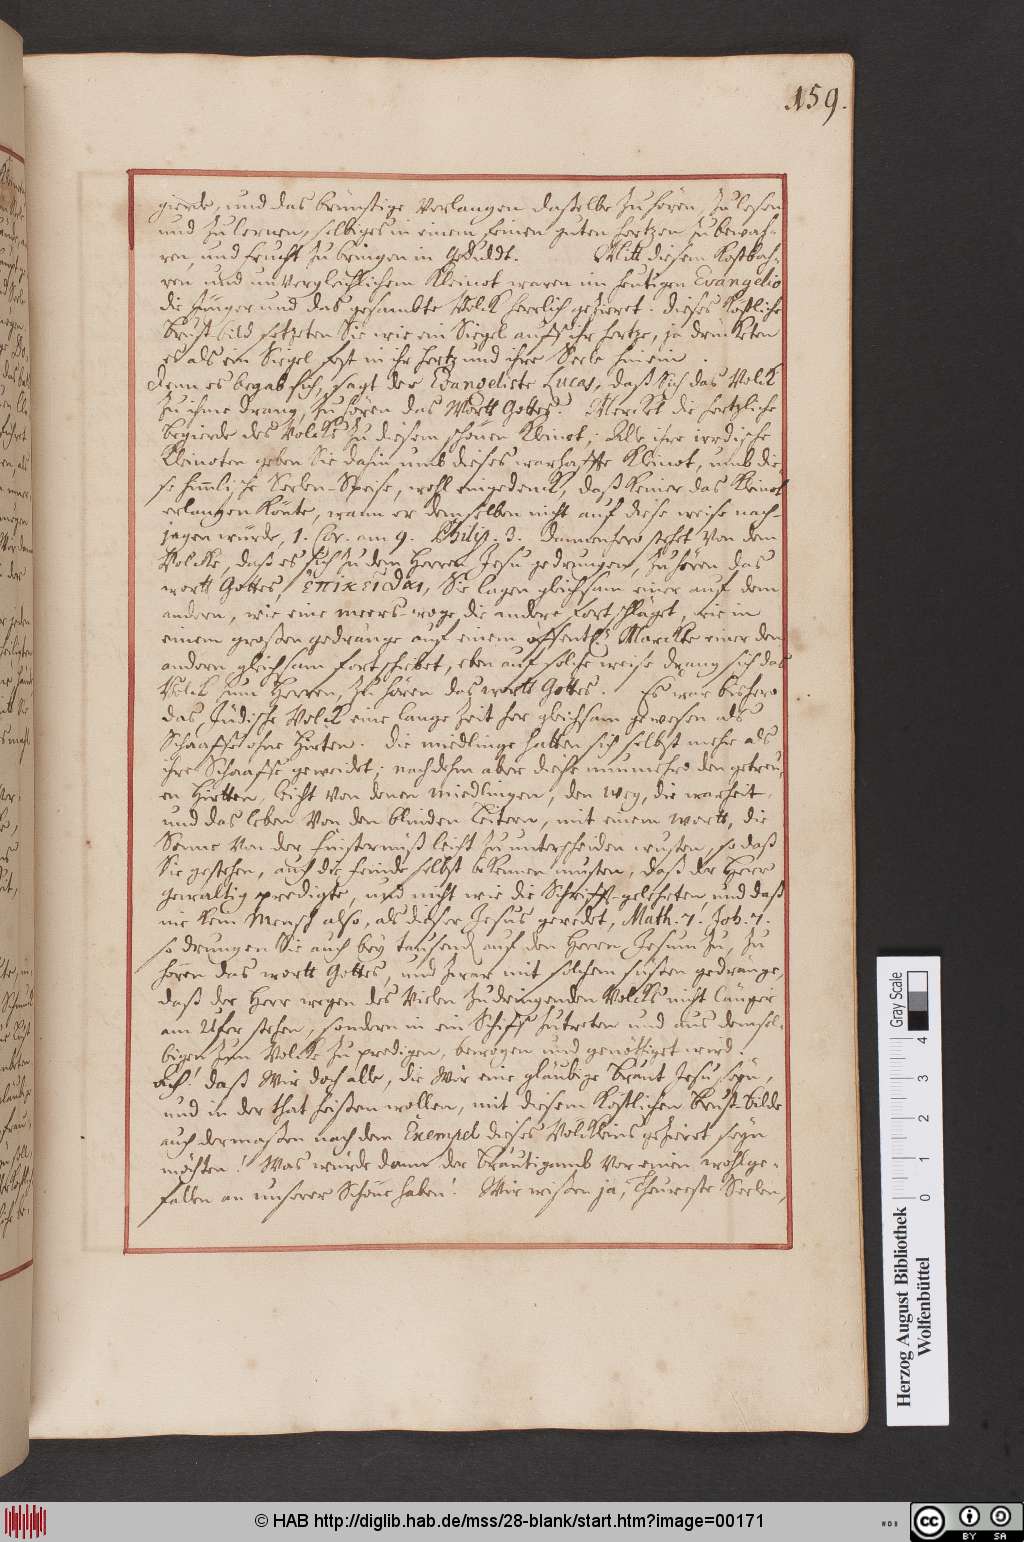 159.
gierde, und das brünstige Verlangen daßelbe zu hören, zu lesen
und zu lernen, selbiges in einem feinen guten hertzen zu bewah-
ren, und frucht zu bringen in Geduldt. Mitt diesem Kostbah-
ren und unvergleichlichem Kleinot waren im heutigen Evangelio
die Jünger und das gesambte Volck herrlich gezieret. diesesKöstliche
brust bild setzten Sie wie ein Siegel aufs ihr hertze, ja druckten
es als ein Siegel fest in ihr hertz und ihre Seele hinein.
denn es begab sich, sagt der Evangeliste Lucas, daß sich das Volck
zu ihme drang, zu hören das Wortt Gottes. Mercket die hertzliche
begierde des Volcks zu diesem schönen Kleinot; Alle ihre irrdische
Kleinoten geben Sie dahin umb dieses warhaffte Kleinot, umb die-
se himliche Seelen-Speise, wohl eingedenck, daß keiner das Kleinot
erlangen könte, wann er demselben nicht auf diese weise nach-
jagen würde, 1. Cor. am 9. Philip. 3. Dannenhero stehet von dem
Volcke, daß es sich zu dem Herren Jesu gedrungen, zu hören das
wortt Gottes, ἐπικεῖσθαι, Sie lagen gleichsam einer auf dem
andern, wie eine meers-woge die andere fortschläget, wie in
einem großen gedränge auf einem öffentl. Marckte einer den
andern gleichsam fortschiebet, eben auf solche weise drang sich das
Volck zum Herren, zu hören das wortt Gottes. Es war bishero
das Jüdische Volck eine lange Zeit her gleichsam gewesen als
Schaaffe ohne Hirten. die miedlinge hatten sich selbst mehr als
ihre Schaaffe geweidet; nachdehm aber diese nunmehro den getreu-
en Hirtten, leicht von denen miedlingen, den weg, die warheit
und das leben von den blinden Leitern, mit einem wortt, die
Sonne von der finsternüß leicht zu unterscheiden wusten, so daß
Sie gestehen, auch die feinde selbst bekennen musten, daß der Herr
gewaltig predigte, und nicht wie die Schrifft-gelehrten, und daß
nie kein Mensch also, als dieser Jesus geredet, Math. 7. Joh. 7.
so drungen Sie auch bey tausend auf den Herren Jesum zu, zu
hören das wortt Gottes, und zwar mit solchem süßen gedränge,
daß der Herr wegen des vielen zudringenden Volcks nicht länger
am Ufer stehen, sondern in ein Schiff zutreten und aus demsel-
bigen zum Volcke zu predigen, bewogen und genöthiget wird.
Ach! daß Wir doch alle, die Wir eine gläubige Braut Jesu seyn,
und in der that heißen wollen, mit diesem Köstlichen Brust-bilde
auch dermaßen nach dem Exempel dieses Volckleins gezieret seyn
möchten! Was würde dann der Bräutigamb vor einen wohlge-
fallen an unserer Schöne haben! Wir wißen ja, Theureste Seelen,
Gray Scale
0 1 2 3 4
Herzog August Bibliothek
Wolfenbüttel
© HAB http://diglib.hab.de/mss/28-blank/start.htm?image=00171
WDB
cc BY SA